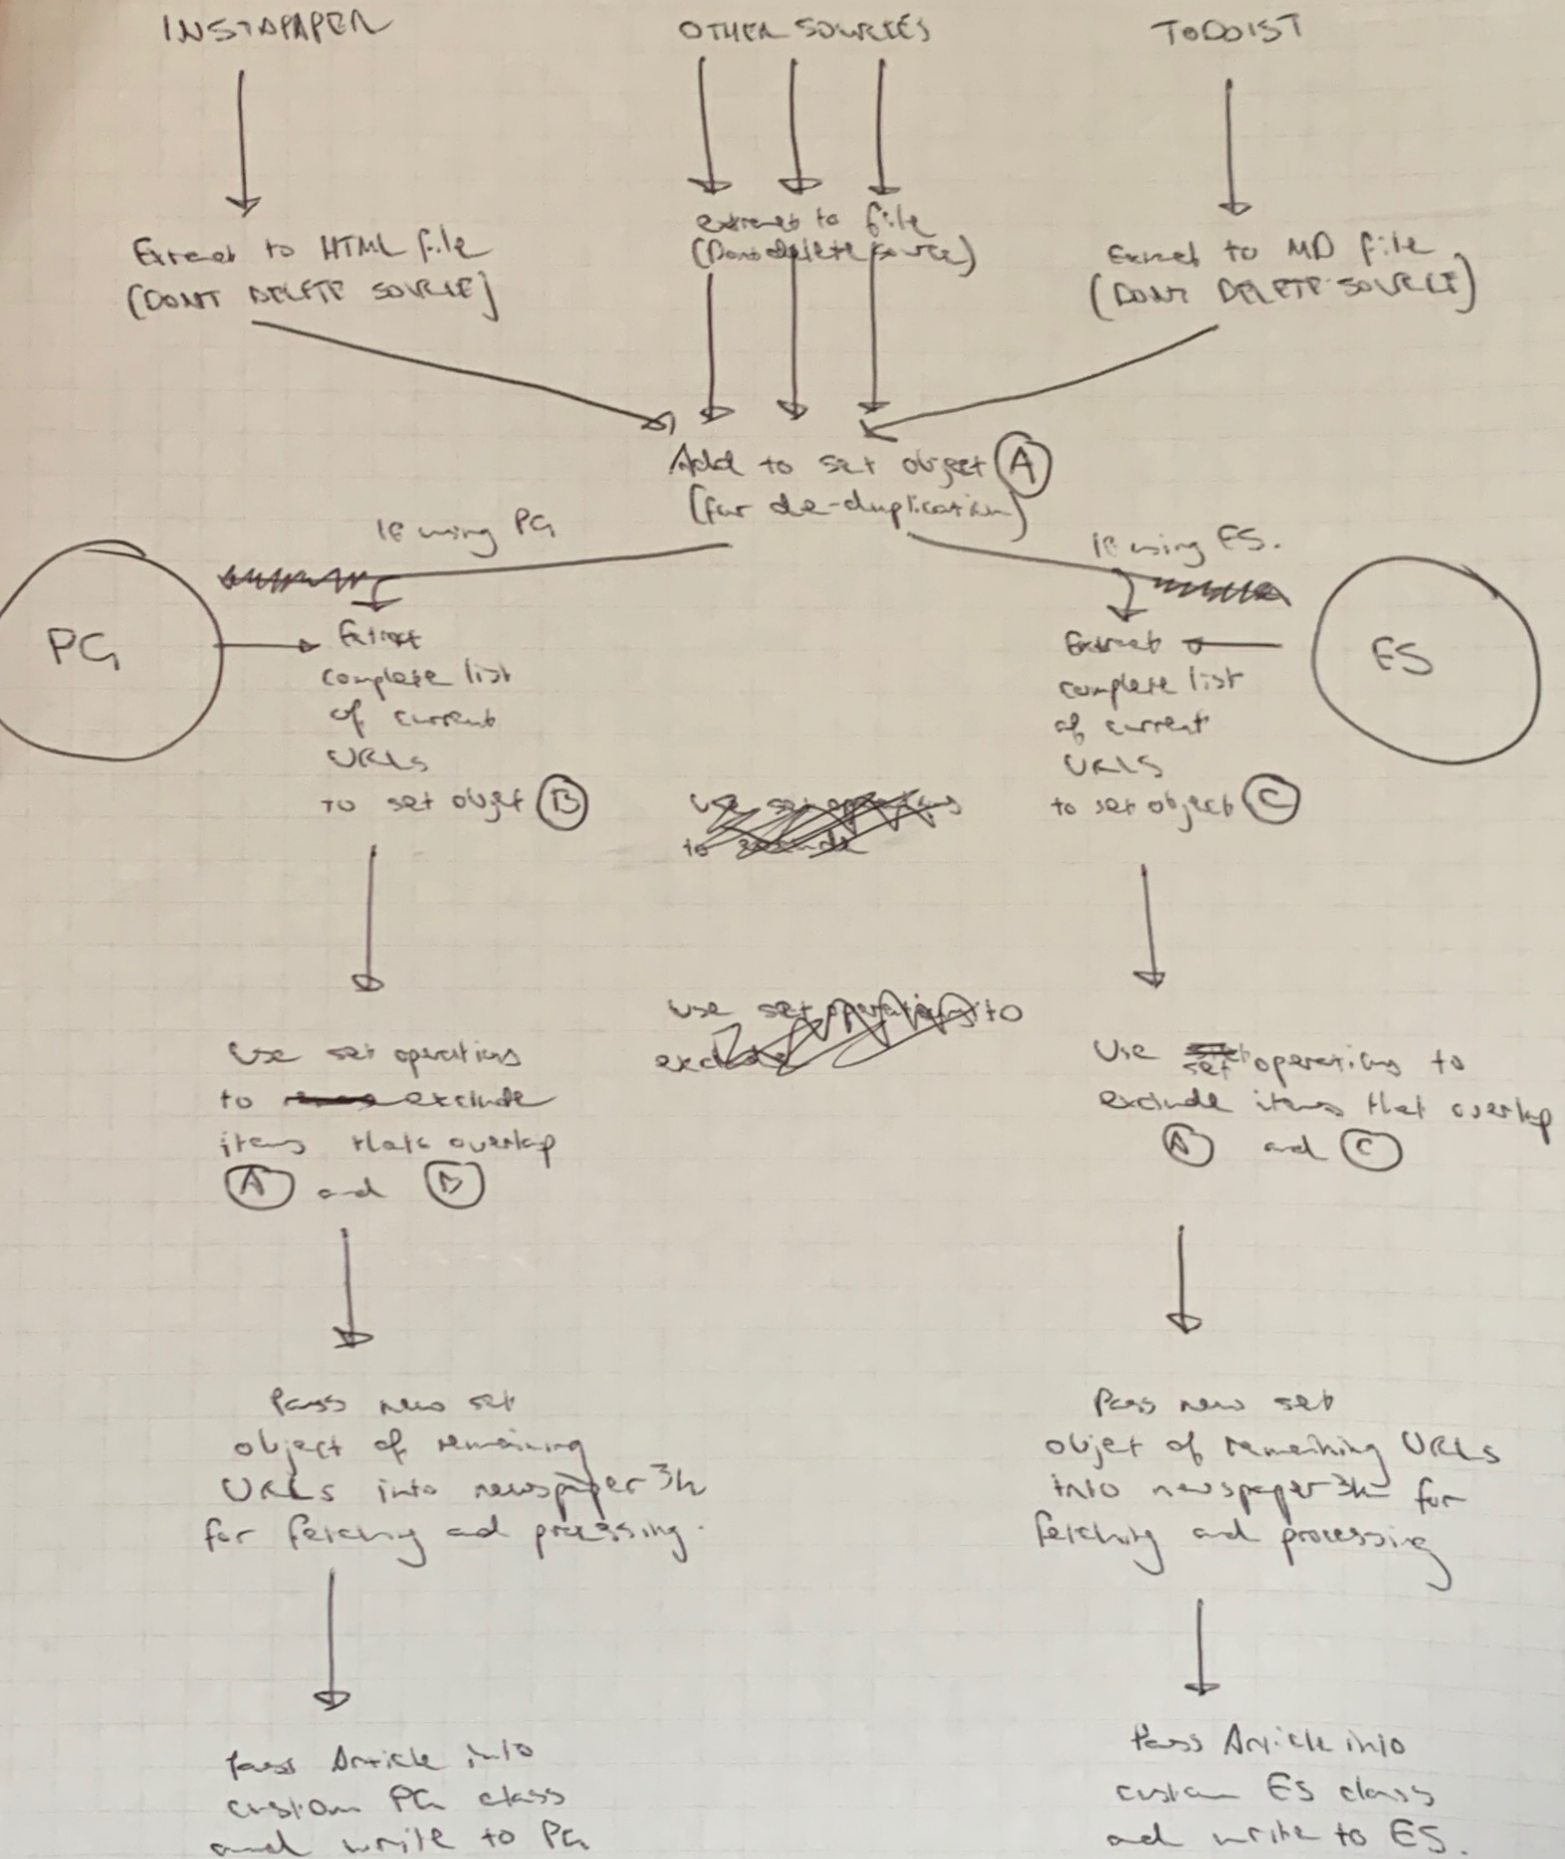 INSTAPAPER
OTHER SOURCES
TODOIST
Extract to HTML file
(DONT DELETE SOURCE)
extract to file
(Dont delete source)
Extract to MD file
(DONT DELETE SOURCE)
Add to set object A
(for de-duplication)
IF using PG
IF using ES.
PG
Extract
complete list
of current
URLs
to set objet B
ES
Extract
complete list
of current
URLS
to set object C
Use set operations
to
Use set operations to
exclude
Use set operations
to exclude
items that overlap
A and B
Use set operations to
exclude items that overlap
A and C
Pass new set
object of remaining
URLs into newspaper3k
for fetching and processing.
Pass new set
objet of remaining URLs
into newspaper3k for
fetching and processing
Pass Article into
custom PG class
and write to PG
Pass Article into
custom ES class
and write to ES.